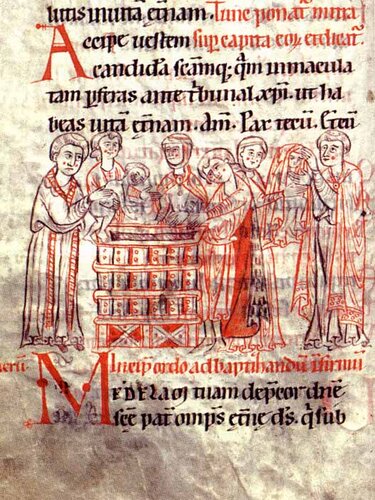 lutis inuitā et̄nam. Tunc ponat̄ mitra
Accipe uestem sup̱ capita eoꝝ et dicat.
candidā scām q; q̄m inmacula
tam ꝑferas ante t'bunal xp̄i. ut ha
beas uitā et̄nam. Am̄. Pax tecū. Et cū
Incip̄ ordo ad baptizandum infirmū
MEDELAM tuam dep̄cor dn̄e
sc̄e pat̄ om̄ps et̄ne d̄s. q̄ sub